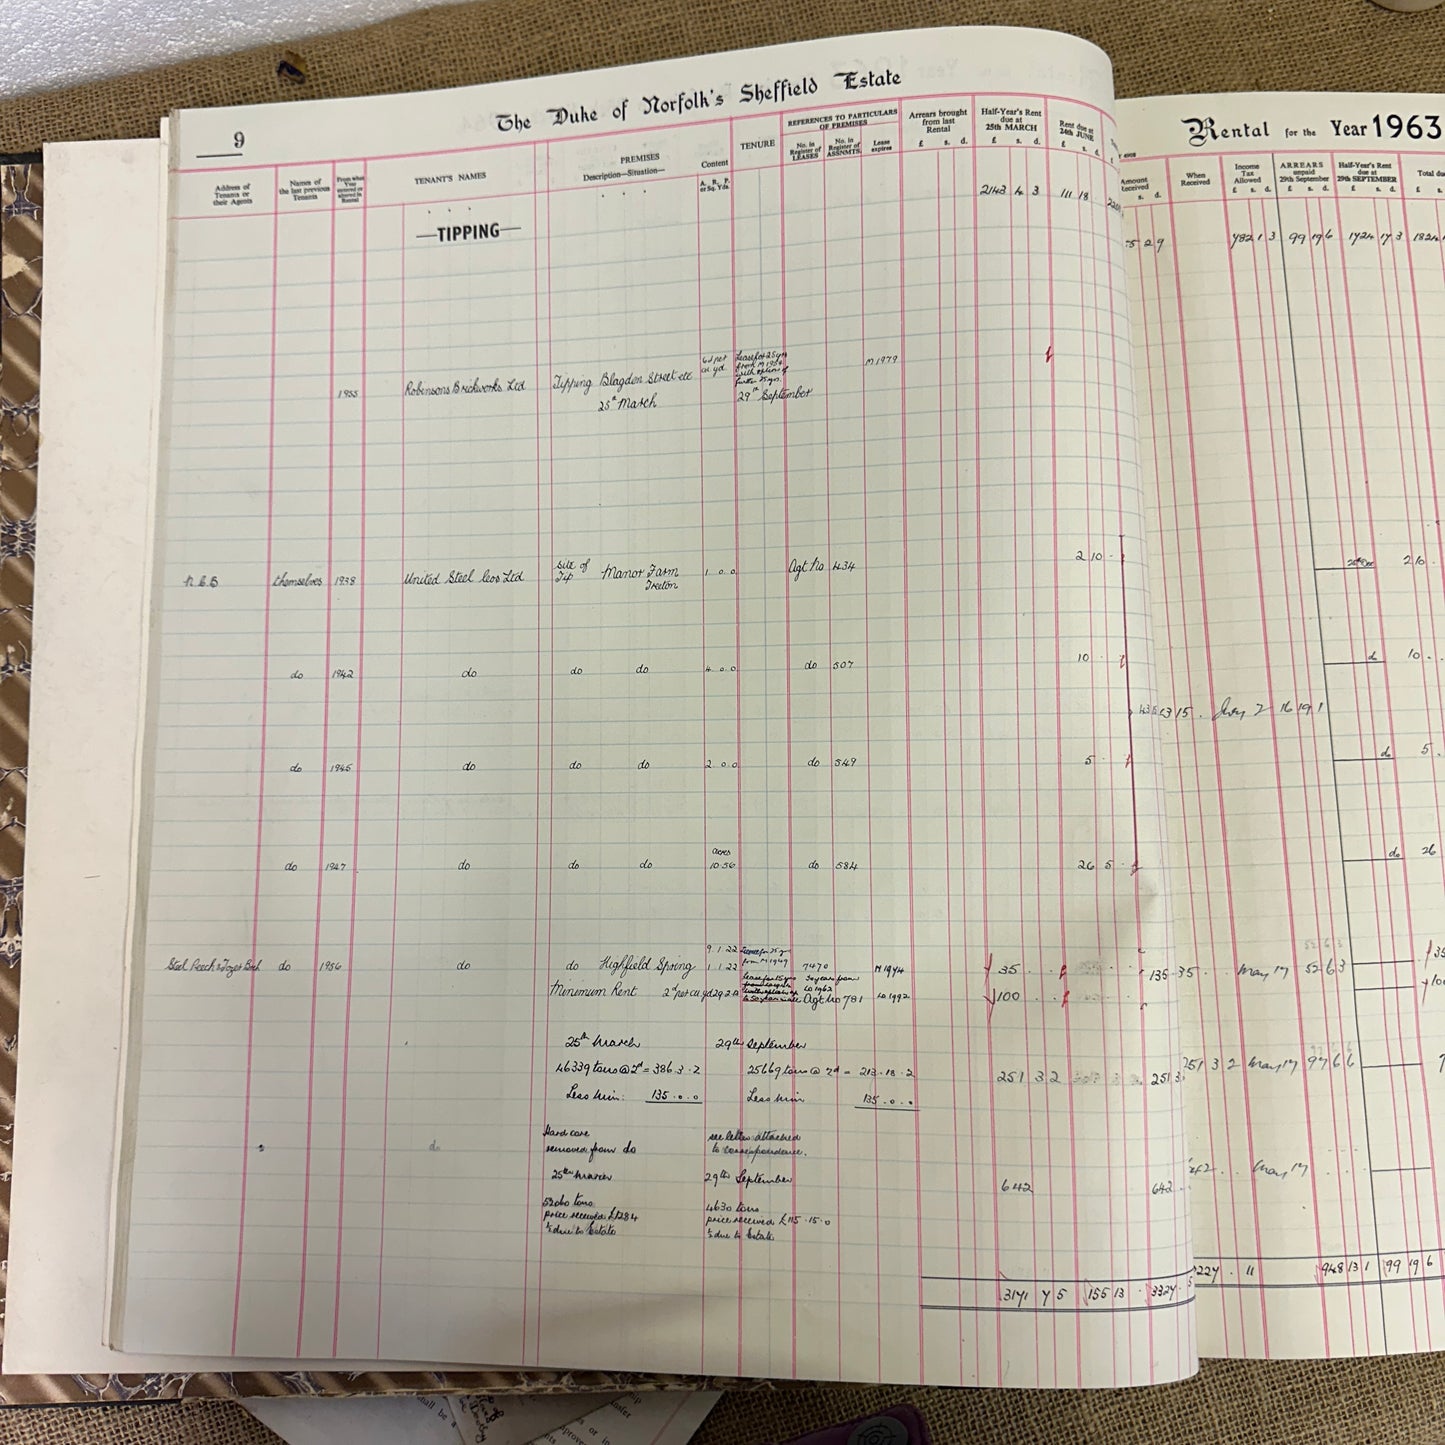 9
The Duke of Norfolk's Sheffield Estate
Rental for the Year 1963
Address of Tenants or their Agents
Names of the last previous Tenants
TENANT'S NAMES
PREMISES
Description—Situation—
Content
A. R. P. or Sq. Yds.
TENURE
REFERENCES TO PARTICULARS OF PREMISES
No. in Register of LEASES
No. in Register of ASSNMTS.
Lease expires
Arrears brought from last Rental
£ s. d.
Half-Year's Rent due at 25th MARCH
£ s. d.
Rent due at 24th JUNE
£ s. d.
Amount Received
s. d.
When Received
Income Tax Allowed
£ s. d.
ARREARS unpaid 29th September
£ s. d.
Half-Year's Rent due at 29th SEPTEMBER
£ s. d.
2143 4 3 111 18
2 9 782 1 3 99 19 6 1724 17 3
—TIPPING—
1955 Robinsons Brickworks Ltd Tipping Blagden Street etc 6d per cu. yd. Lease for 25 yrs from M 1954 with option of further 25 yrs. M 1979
25th March 29th September
themselves 1938 United Steel Cos Ltd Site of Tip Manor Farm Treeton 1 . 0 . 0 Agt No 434 2 10 -
do 1942 do do do 4 . 0 . 0 do 507 10
do 10
15 . 16 19 1
do 1945 do do do 2 . 0 . 0 do 549 5
do 5
do 1947 do do do acres 10.56 do 584 26 5
do 26
Steel Peech & Tozer Bch do 1956 do do Highfield Spring 9 . 1 . 22 7470 35
1 . 1 . 22
135 - 35 . . May 17 52 6 3
Minimum Rent 2d per cu yd 29.2.0 Agt No 781 100
25th March 29th September
46339 tons @ 2d = 386.3.2 25669 tons @ 2d = 213.18.2 251 3 2
251 3 2 May 17 97 6 6
Less Min: 135.0.0 Less Min 135.0.0
Hard core removed from do see letter attached to correspondence.
25th March 29th September 642
642 May 17
tons 4630 tons
price received £1284 price received £115.15.0
½ due to Estate ½ due to Estate
3171 7 5 155 13 3327
948 13 1 99 19 6